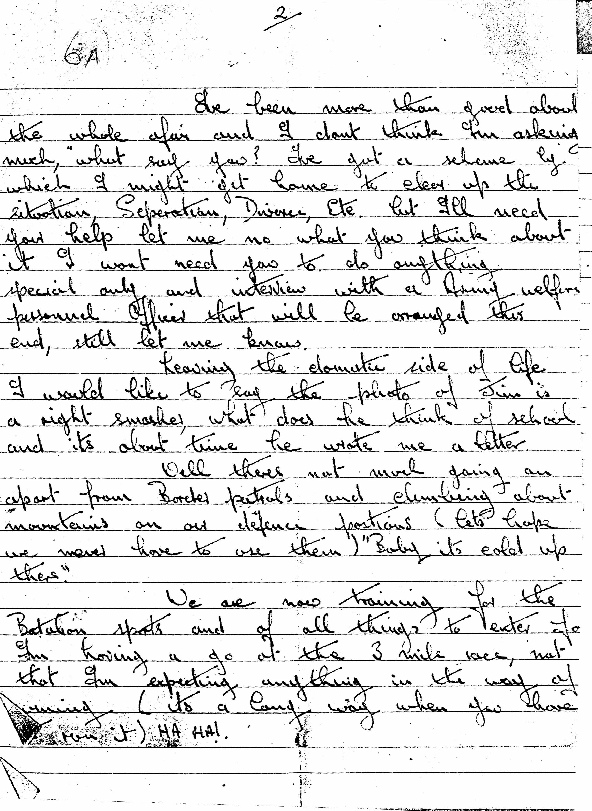 2
6A
Ive been more than good about
the whole afair and I dont think Im asking
much, "what say you? Ive got a scheme by
which I might get home to clear up the
sitotian, Seperation, Divorce, Etc but Ill need
your help let me no what you think about
it I wont need you to do anything
special only and interview with a Army welfare
personnel Officer that will be arranged this
end, still let me know.
Leaving the domatic side of life
I would like to say the photo of Jim is
a right smasher, what does he think of school
and its about time he wrote me a letter
Well theres not much going on
apart from Border patrols and clumbing about
mountains on our defence positions (lets hope
we never have to use them) "Baby its cold up
there."
We are now training for the
Batalion sports and of all things to enter
Im having a go at the 3 mile race, not
that Im expecting anything in the way of
(its a long way when you have
run it) HA HA!.